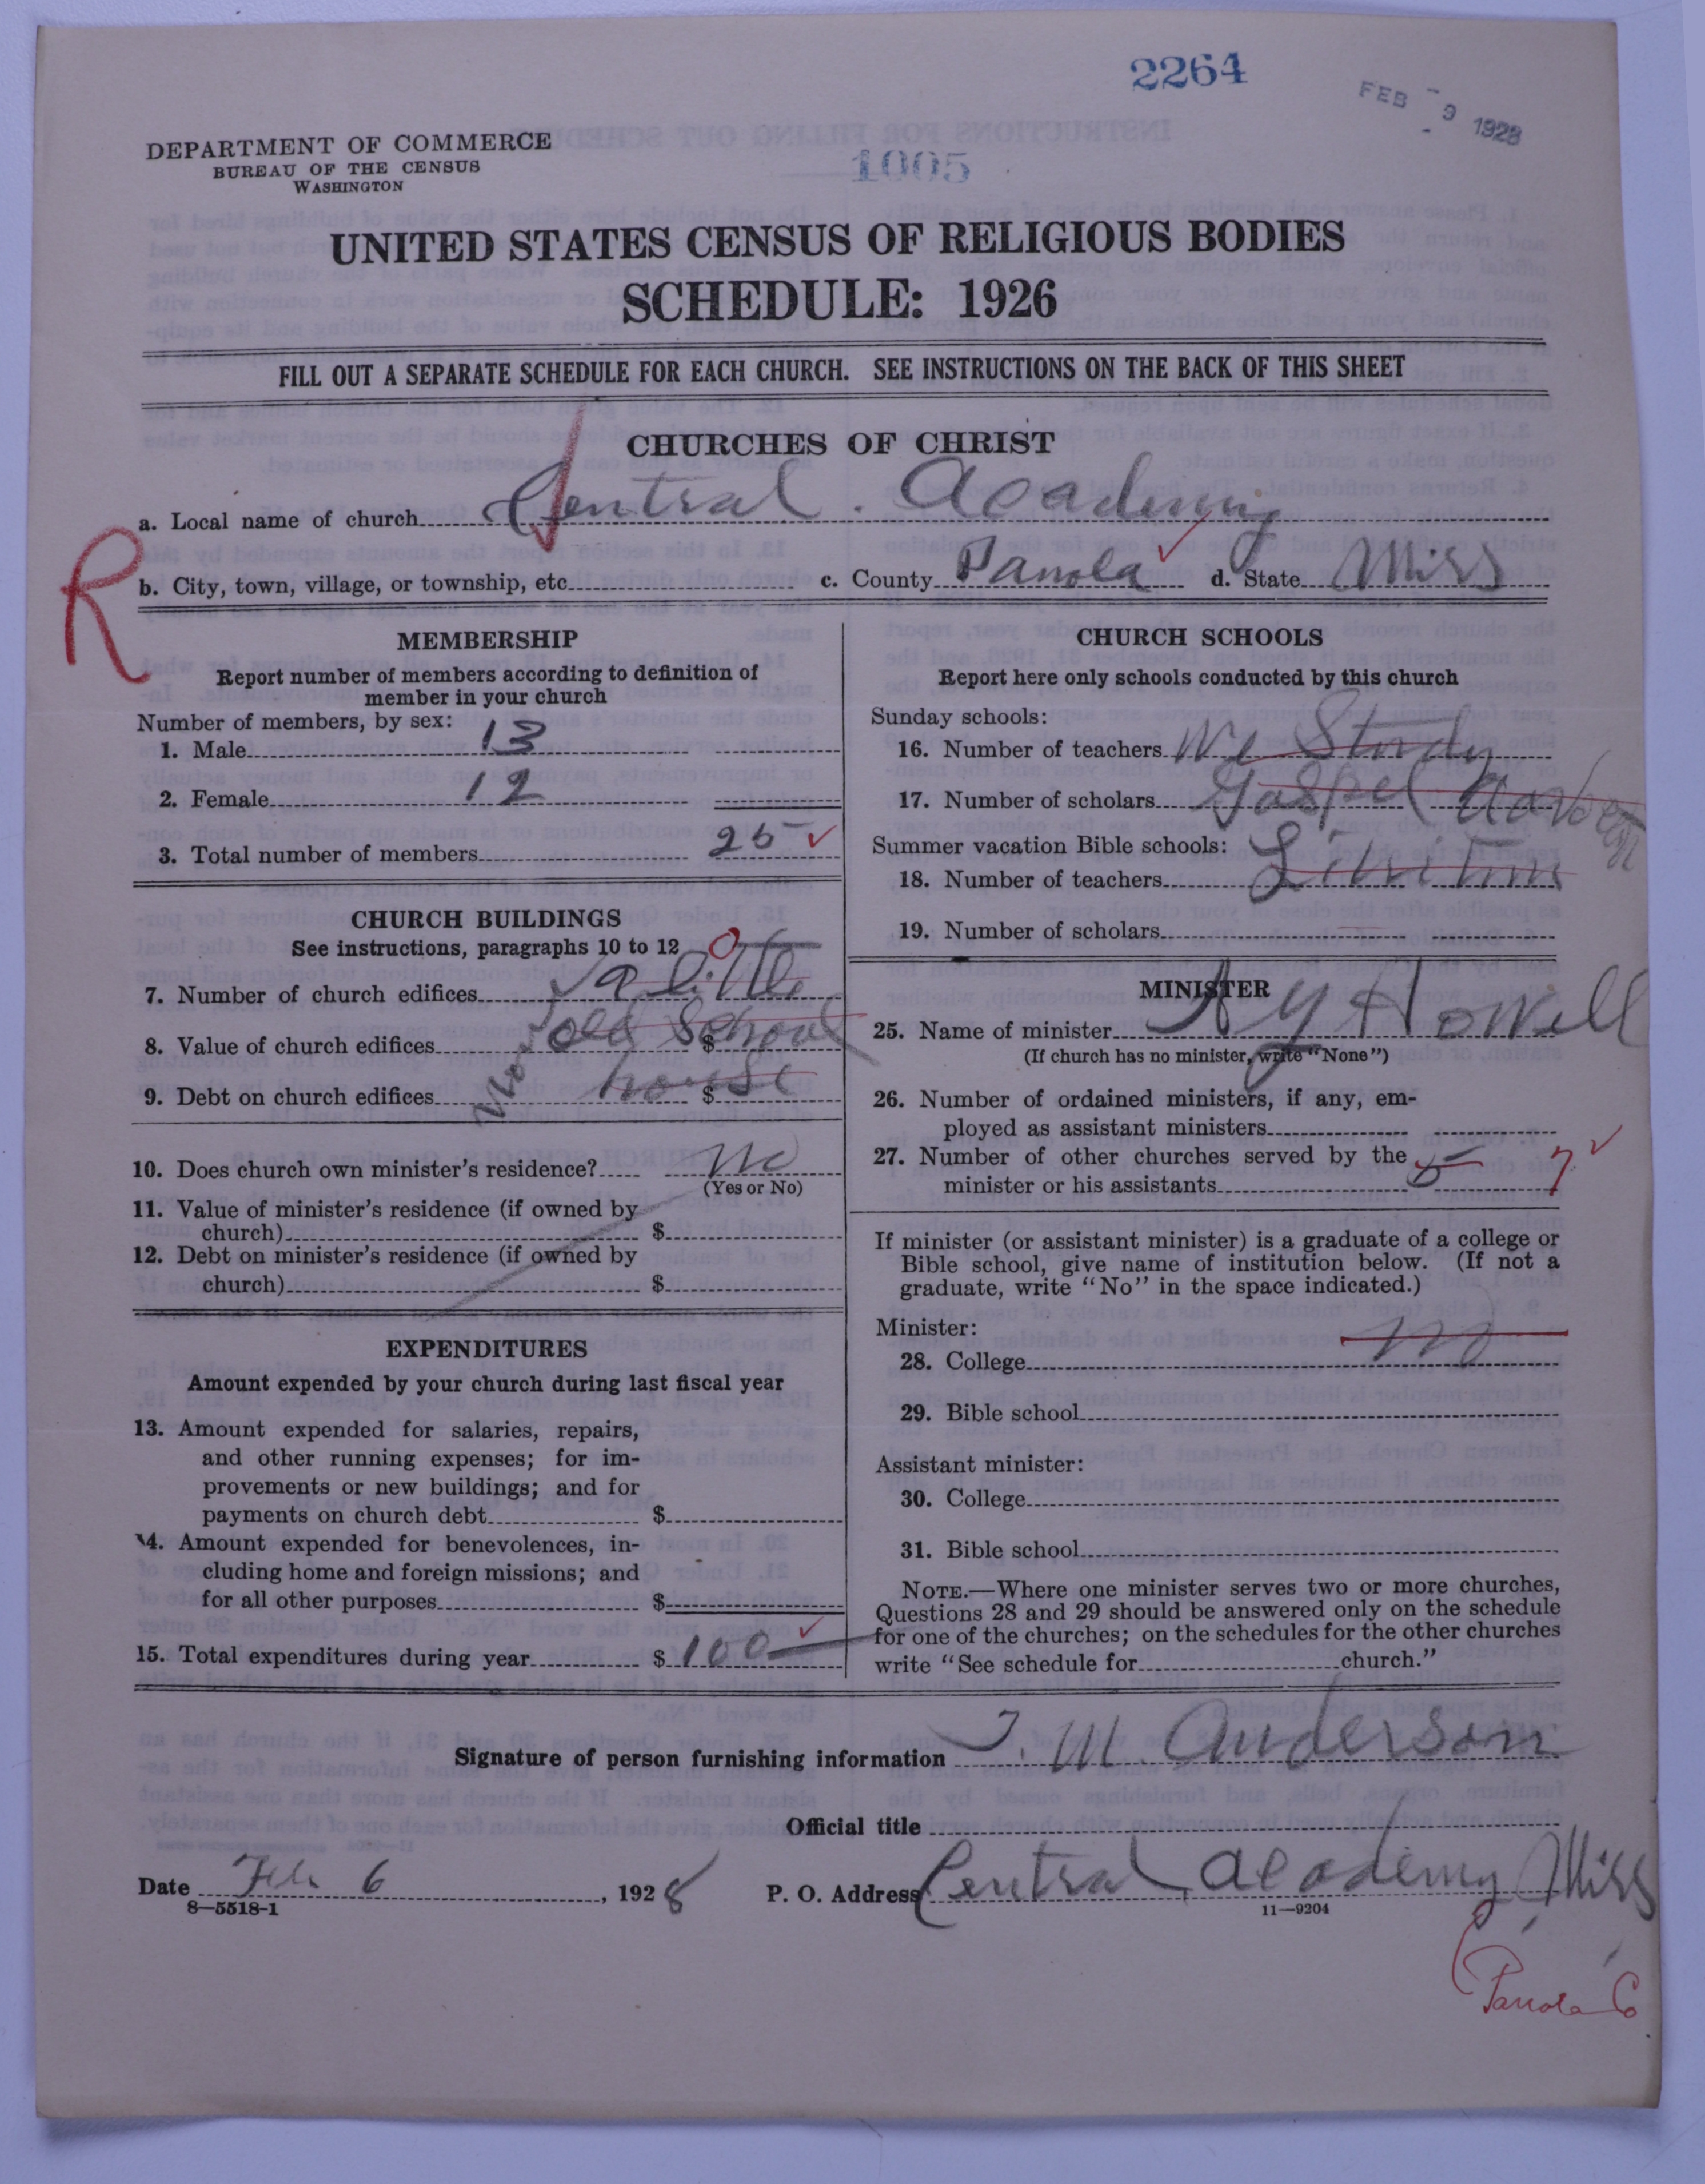 2264
FEB - 9 1928
1005
DEPARTMENT OF COMMERCE
BUREAU OF THE CENSUS
WASHINGTON
UNITED STATES CENSUS OF RELIGIOUS BODIES
SCHEDULE: 1926
FILL OUT A SEPARATE SCHEDULE FOR EACH CHURCH. SEE INSTRUCTIONS ON THE BACK OF THIS SHEET
CHURCHES OF CHRIST
a. Local name of church Central. Academy
R
b. City, town, village, or township, etc. c. County Panola d. State Miss
MEMBERSHIP
Report number of members according to definition of
member in your church
Number of members, by sex:
1. Male 13
2. Female 12
3. Total number of members 25
CHURCH BUILDINGS
See instructions, paragraphs 10 to 12 0
7. Number of church edifices a little
8. Value of church edifices old School $
9. Debt on church edifices house $
10. Does church own minister's residence? No
(Yes or No)
11. Value of minister's residence (if owned by
church) $
12. Debt on minister's residence (if owned by
church) $
EXPENDITURES
Amount expended by your church during last fiscal year
13. Amount expended for salaries, repairs,
and other running expenses; for im-
provements or new buildings; and for
payments on church debt $
14. Amount expended for benevolences, in-
cluding home and foreign missions; and
for all other purposes $
15. Total expenditures during year $ 100
CHURCH SCHOOLS
Report here only schools conducted by this church
Sunday schools:
16. Number of teachers We Study
17. Number of scholars Gospel
Summer vacation Bible schools:
18. Number of teachers
19. Number of scholars
MINISTER
25. Name of minister A Y Howell
(If church has no minister, write "None")
26. Number of ordained ministers, if any, em-
ployed as assistant ministers
27. Number of other churches served by the
minister or his assistants 5 7
If minister (or assistant minister) is a graduate of a college or
Bible school, give name of institution below. (If not a
graduate, write "No" in the space indicated.)
Minister:
28. College no
29. Bible school
Assistant minister:
30. College
31. Bible school
NOTE.—Where one minister serves two or more churches,
Questions 28 and 29 should be answered only on the schedule
for one of the churches; on the schedules for the other churches
write "See schedule for church."
Signature of person furnishing information J. M. Anderson
Official title
Date Feb 6, 1928 P. O. Address Central Academy Miss
8—5518-1 11—9204
Panola Co